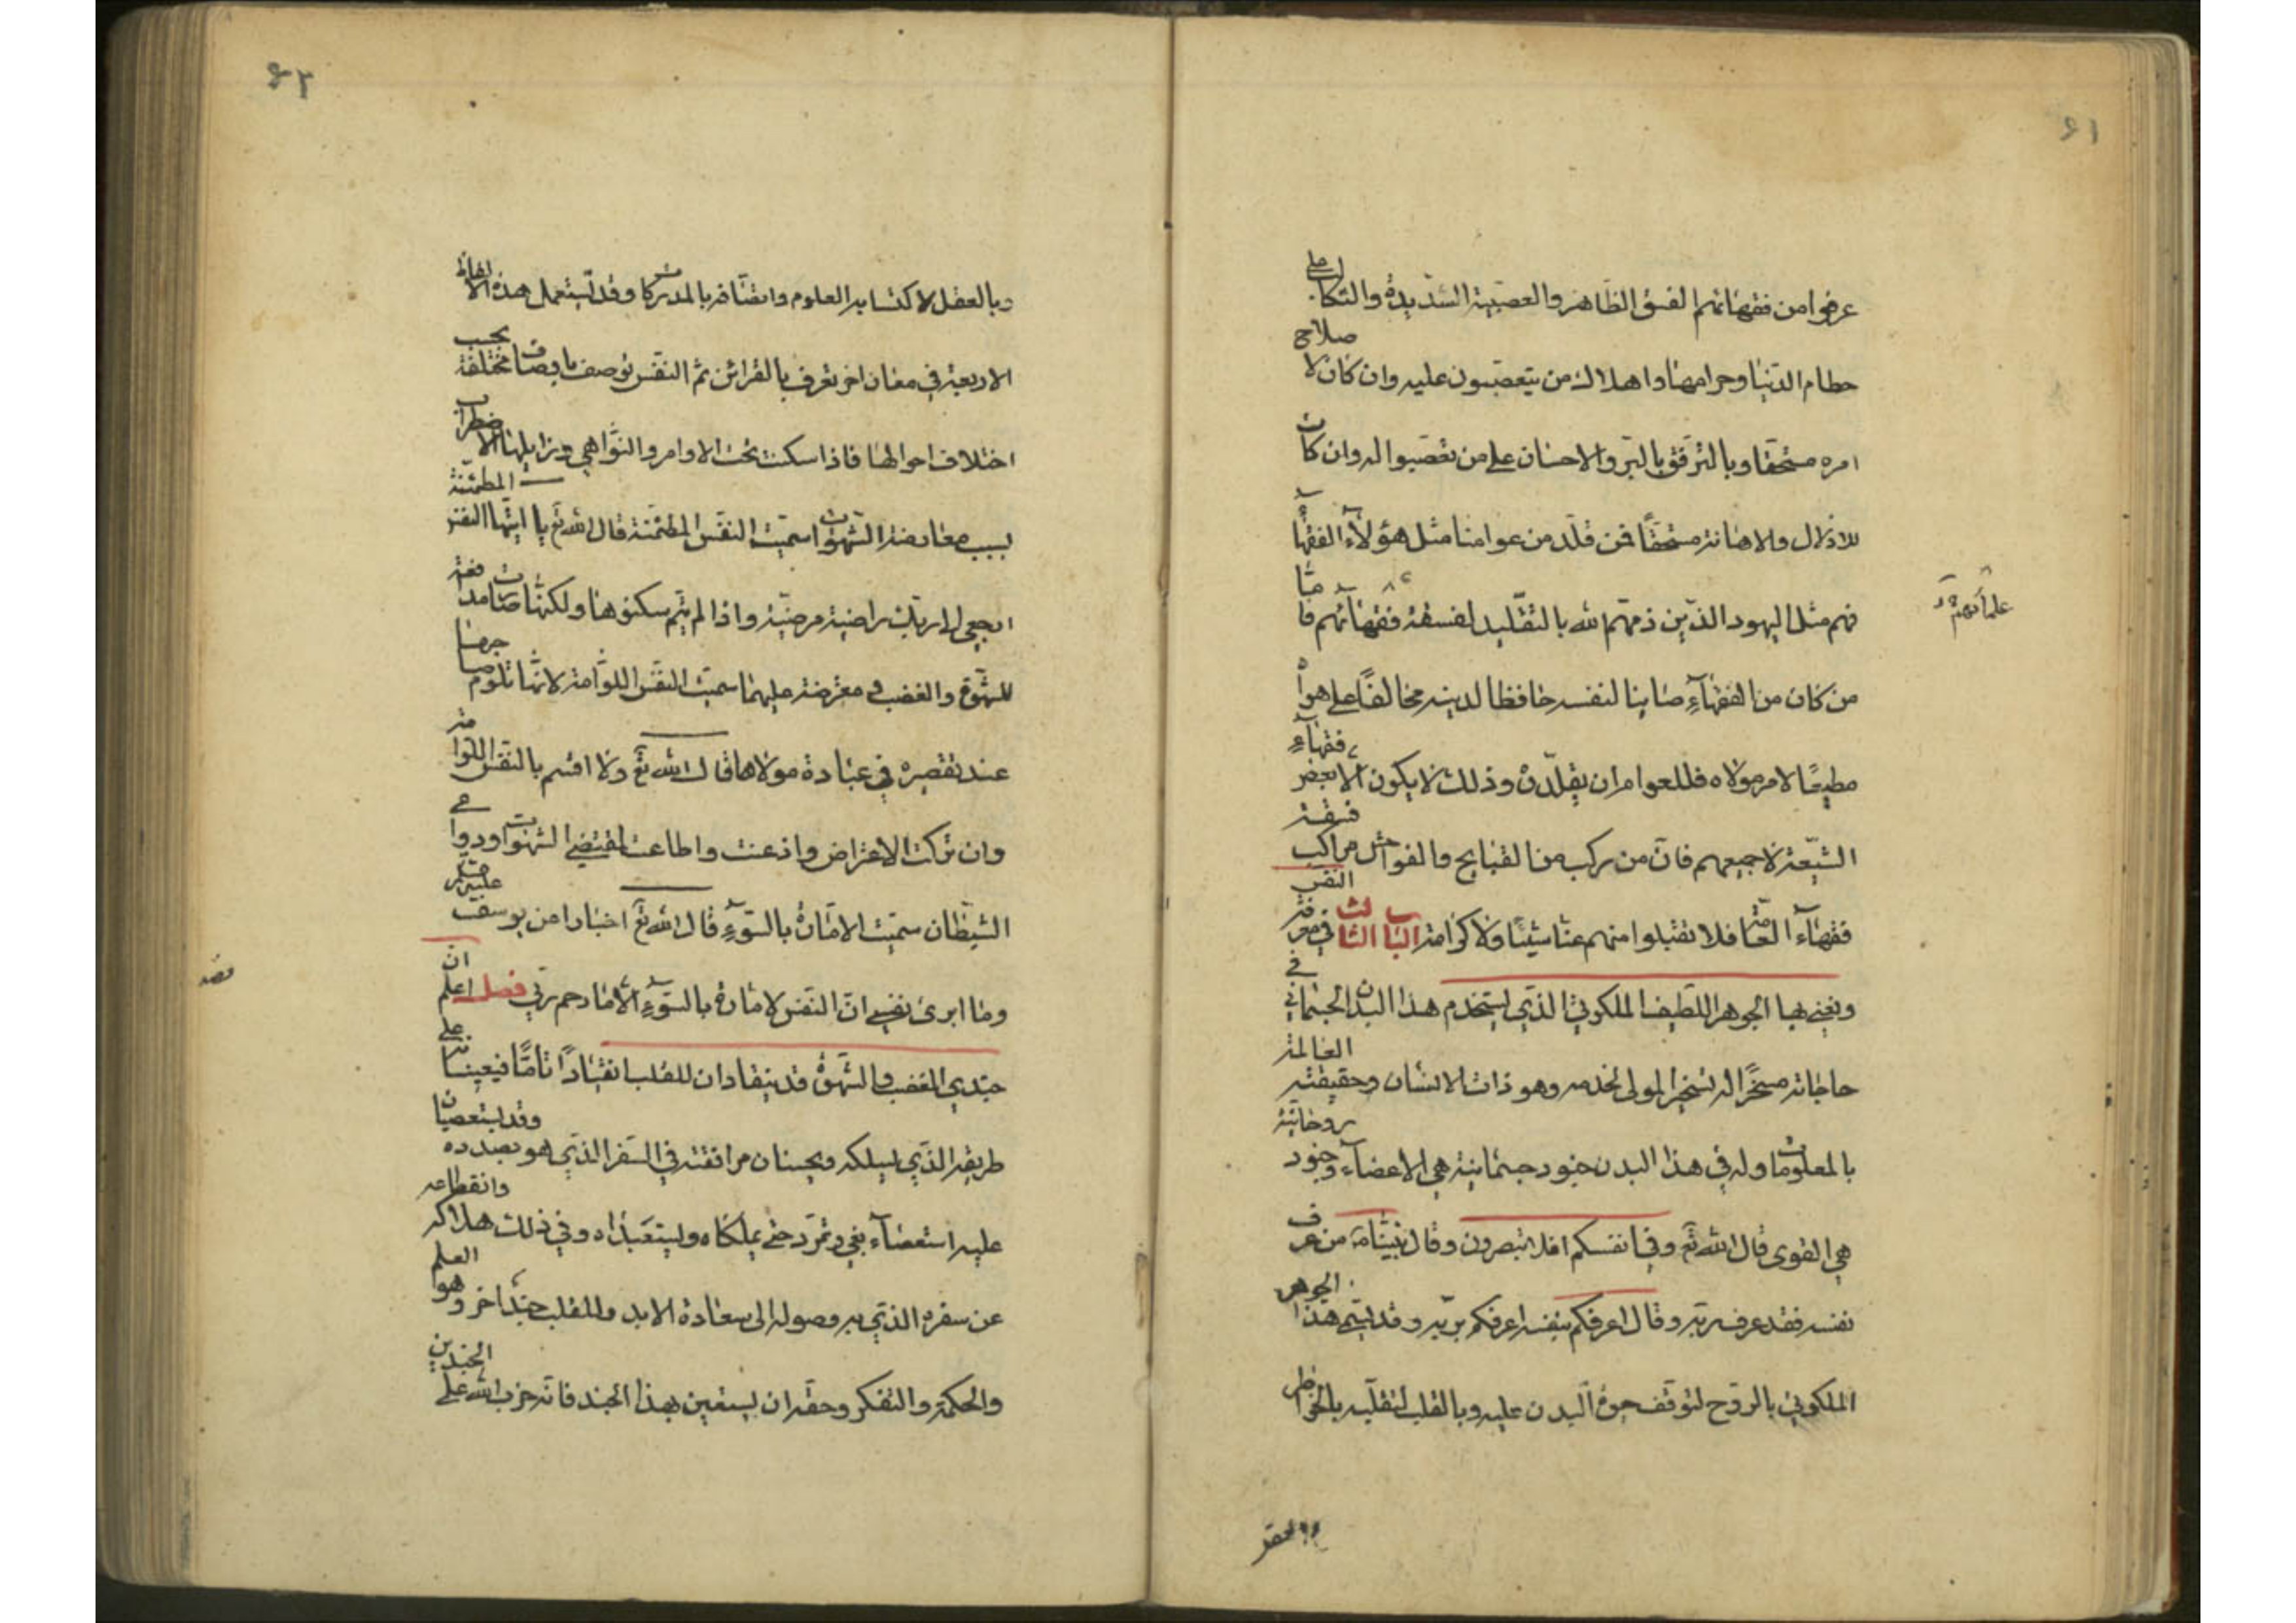 ٤١
عرفوا من فقهائهم الفسق الظاهر والعصبية الشديدة والتكالب على
حطام الدنيا وحرامها واهلاك من يتعصبون عليه وان كان لاصلاح
امره مستحقا وبالترفق بالبر والاحسان على من تعصبوا له وان كان
للاذلال والاهانة مستحقا فمن قلد من عوامنا مثل هؤلاء الفقهاء
فهم مثل اليهود الذين ذمهم الله بالتقليد لفسقة فقهائهم فاما
علمائهم
من كان من الفقهاء صاينا لنفسه حافظا لدينه مخالفا على هواه
مطيعا لامر مولاه فللعوام ان يقلدوه وذلك لا يكون الا بعض فقهاء
الشيعة لا جميعهم فان من ركب من القبايح والفواحش مراكب فسقة
فقهاء العامة فلا تقبلوا منهم عنا شيئا ولا كرامة الباب الثالث في معرفة النفس
ونعني بها الجوهر اللطيف الملكوتي الذي يستخدم هذا البدن الجسماني في
حاجاته مسخرا له تسخير المولى لخدمه وهو ذات الانسان وحقيقته العالمة
بالمعلومات وله في هذا البدن جنود جسمانية هي الاعضاء وجنود روحانية
هي القوى قال الله تع وفي انفسكم افلا تبصرون وقال نبينا من عرف
نفسه فقد عرف ربه وقال اعرفكم بنفسه اعرفكم بربه وقد يسمى هذا الجوهر
الملكوتي بالروح لتوقف حيوة البدن عليه وبالقلب لتقلبه بالخواطر
٤٢
وبالعقل لاكتسابه العلوم واتصافه بالمدركات وقد يستعمل هذه الالفاظ
الاربعة في معان اخر تعرف بالقرائن ثم النفس توصف باوصاف مختلفة بحسب
اختلاف احوالها فاذا سكنت تحت الاوامر والنواهي وزايلها الاضطراب
بسبب معارضة الشهوات سميت النفس المطمئنة قال الله تع يا ايتها النفس المطمئنة
ارجعي الى ربك راضية مرضية واذا لم يتم سكونها ولكنها صارت مدافعة
للشهوة والغضب ومعترضة عليهما سميت النفس اللوامة لانها تلوم صاحبها
عند تقصيره في عبادة مولاها قال الله تع ولا اقسم بالنفس اللوامة
وان تركت الاعتراض واذعنت واطاعت لمقتضى الشهوات ودواعي
الشيطان سميت الامارة بالسوء قال الله تع اخبارا من يوسف
وما ابرئ نفسي ان النفس لامارة بالسوء الا ما رحم ربي فصل اعلم ان
جندي الغضب والشهوة قد ينقادان للقلب انقيادا تاما فيعينانه على
طريقه الذي يسلكه ويحسنان مرافقته في السفر الذي هو بصدده وقد يستعصيان
عليه استعصاء بغي وتمرد حتى يملكاه ويستعبداه وفي ذلك هلاكه وانقطاعه
عن سفره الذي به وصوله الى سعادة الابد وللقلب جند اخر وهو العلم
والحكمة والتفكر وحقه ان يستعين بهذا الجند فانه حزب الله على الجندين